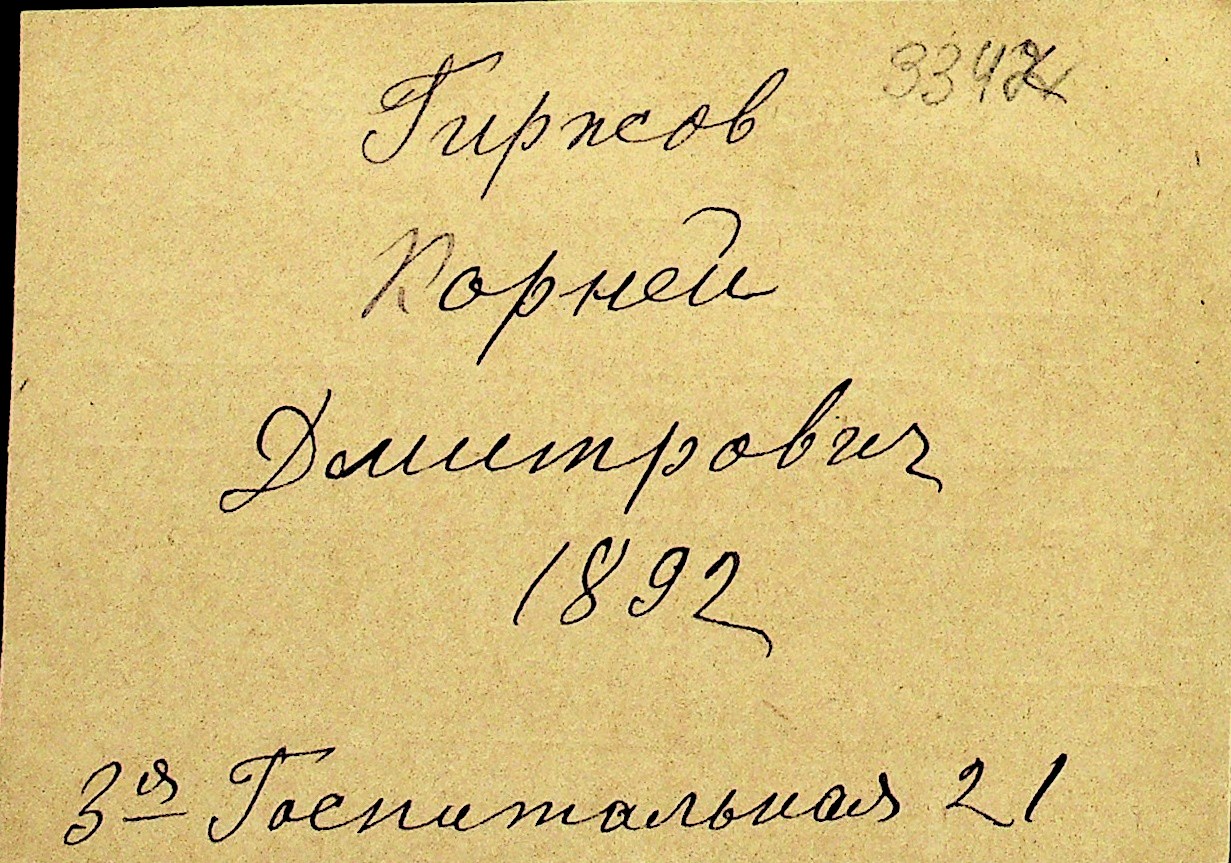 3347
Гиржов
Корней
Дмитрович
1892
3я Госпитальная 21